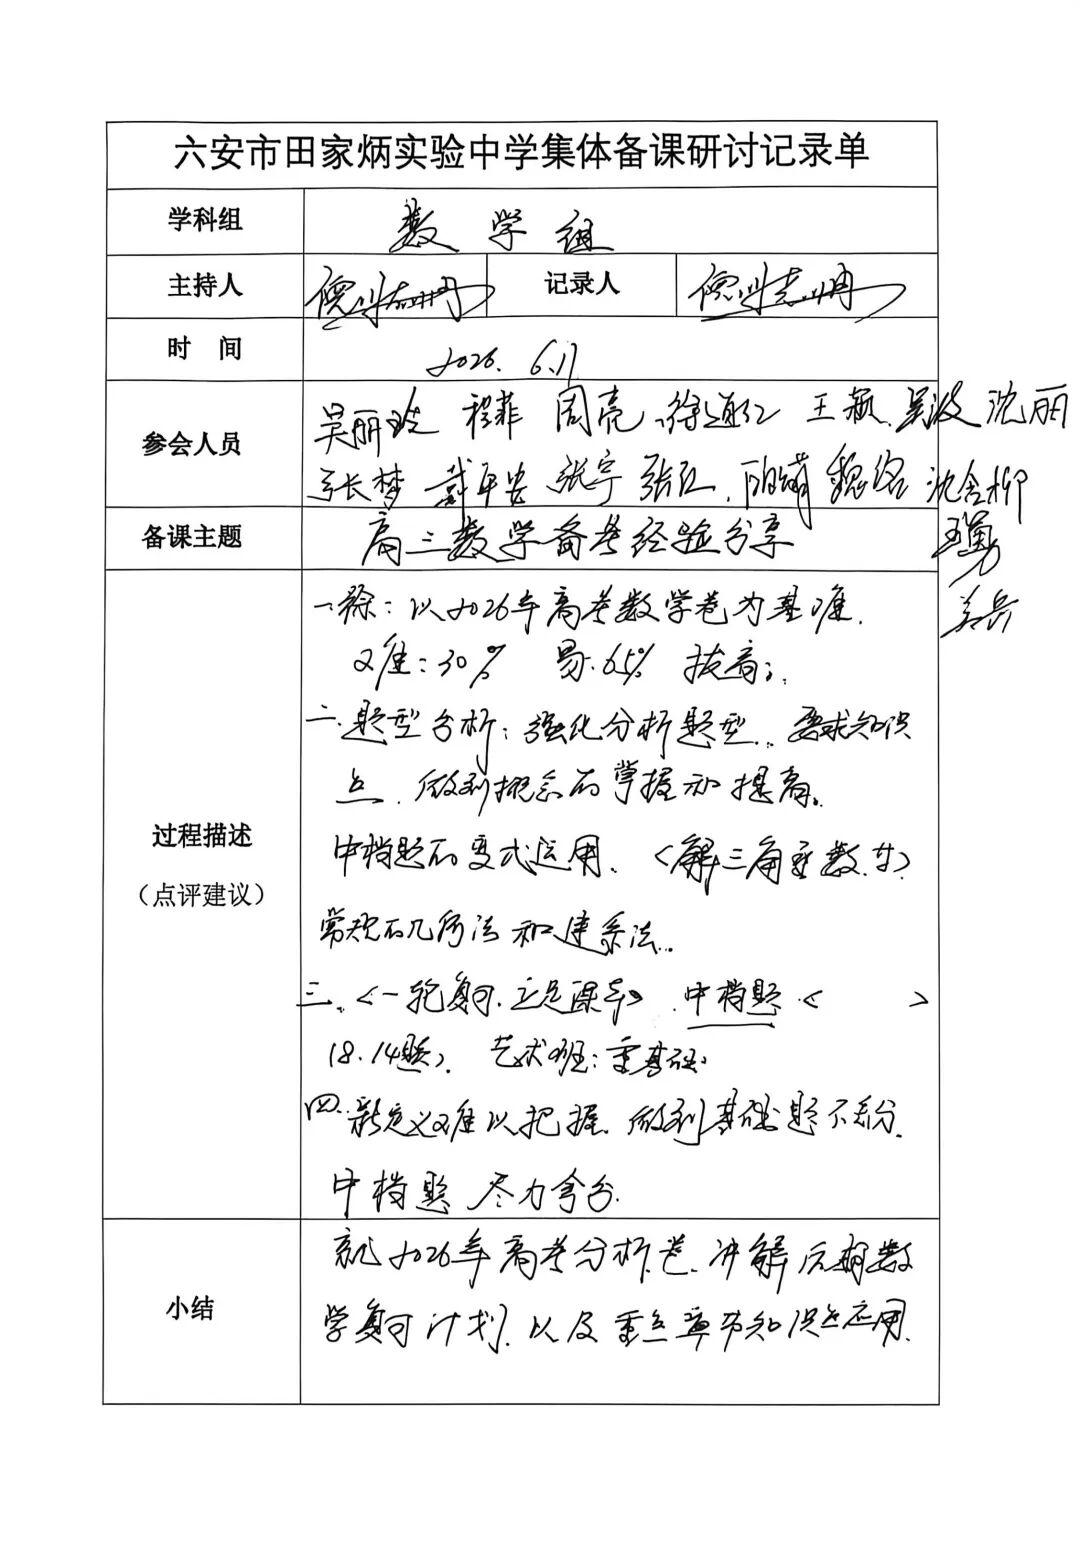 六安市田家炳实验中学集体备课研讨记录单
学科组 数学组
主持人 记录人
时 间 2026.6.11
参会人员 吴丽玲 程菲 周亮 徐道仁 王颖 吴波 沈丽
张梦 戴平安 张宇 张红 魏洛 沈含柳
备课主题 高三数学备考经验分享 王勇
一.徐:以2026年高考数学卷为基准. 姜兵
难:30% 易.65% 拔高;
二.题型分析:强化分析题型.要求知识
过程描述 点.做到概念的掌握和提高。
(点评建议) 中档题的变式运用.
常规的几何法和建系法.
三.<一轮复习.立足课本> 中档题< >
18.14题). 艺术班:重基础.
四.新定义难以把握.做到基础题不丢分.
中档题尽力拿分.
小结 就2026年高考分析卷.讲解后期数
学复习计划.以及重点章节知识点应用.